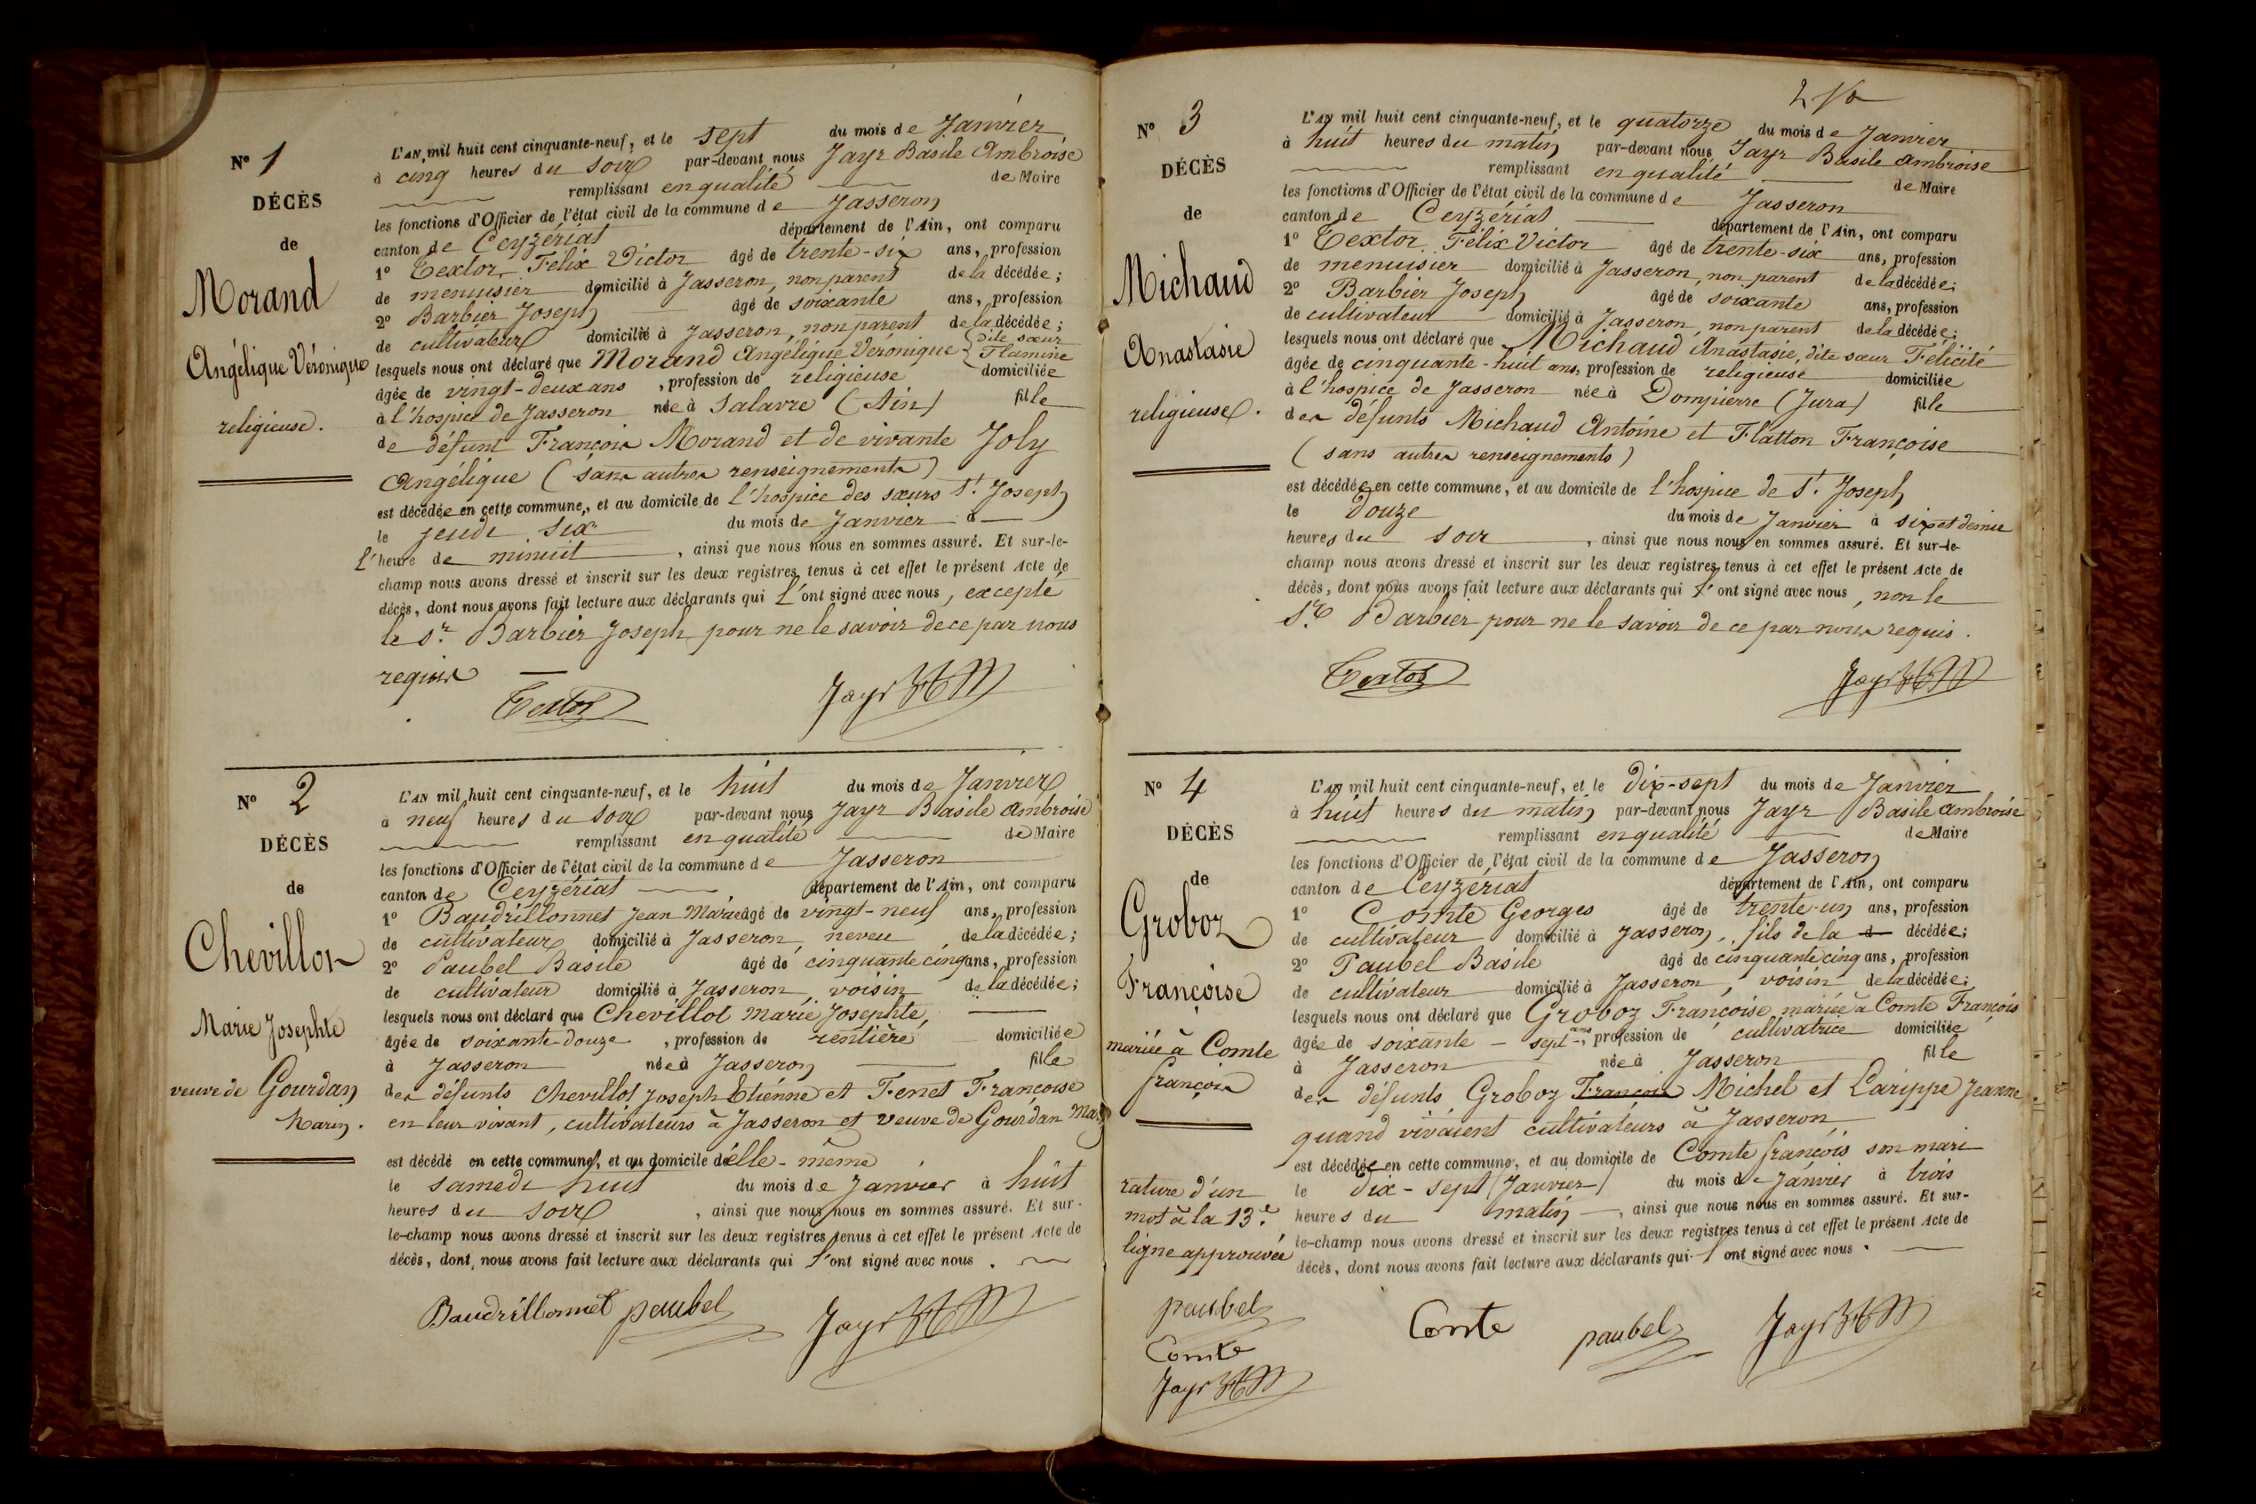 N° 1
DÉCÈS
de
Morand
Angélique Véronique
religieuse.
L'AN mil huit cent cinquante-neuf, et le sept du mois de Janvier
à cinq heures du soir par-devant nous Jayr Basile Ambroise
remplissant en qualité de Maire
les fonctions d'Officier de l'état civil de la commune de Jasseron
canton de Ceyzériat département de l'Ain, ont comparu
1° Textor Félix Victor âgé de trente-six ans, profession
de menuisier domicilié à Jasseron, non parent de la décédée;
2° Barbier Joseph âgé de soixante ans, profession
de cultivateur domicilié à Jasseron, non parent de la décédée;
lesquels nous ont déclaré que Morand Angélique Véronique dite sœur Flamine
âgée de vingt-deux ans, profession de religieuse domiciliée
à l'hospice de Jasseron née à Salavre (Ain) fille
de défunt François Morand et de vivante Joly
Angélique (sans autres renseignements)
est décédée en cette commune, et au domicile de l'hospice des sœurs St Joseph
le jeudi six du mois de Janvier à
l'heure de minuit, ainsi que nous nous en sommes assuré. Et sur-le-
champ nous avons dressé et inscrit sur les deux registres tenus à cet effet le présent Acte de
décès, dont nous avons fait lecture aux déclarants qui l'ont signé avec nous, excepté
le Sr Barbier Joseph pour ne le savoir de ce par nous
requis
Textor Jayr
N° 2
DÉCÈS
de
Chevillot
Marie Josephte
veuve de Gourdan
Marin.
L'AN mil huit cent cinquante-neuf, et le huit du mois de Janvier
à neuf heures du soir par-devant nous Jayr Basile Ambroise
remplissant en qualité de Maire
les fonctions d'Officier de l'état civil de la commune de Jasseron
canton de Ceyzériat département de l'Ain, ont comparu
1° Baudrillonnet Jean Marie âgé de vingt-neuf ans, profession
de cultivateur domicilié à Jasseron, neveu de la décédée;
2° Paubel Basile âgé de cinquante cinq ans, profession
de cultivateur domicilié à Jasseron, voisin de la décédée;
lesquels nous ont déclaré que Chevillot Marie Josephte,
âgée de soixante-douze, profession de rentière domiciliée
à Jasseron née à Jasseron fille
des défunts Chevillot Joseph Etienne et Fenet Françoise
en leur vivant, cultivateurs à Jasseron et veuve de Gourdan Marin
est décédé en cette commune, et au domicile d'elle-même
le samedi huit du mois de Janvier à huit
heures du soir, ainsi que nous nous en sommes assuré. Et sur-
le-champ nous avons dressé et inscrit sur les deux registres tenus à cet effet le présent Acte de
décès, dont nous avons fait lecture aux déclarants qui l'ont signé avec nous.
Baudrillonnet paubel Jayr
N° 3
DÉCÈS
de
Michaud
Anastasie
religieuse.
L'AN mil huit cent cinquante-neuf, et le quatorze du mois de Janvier
à huit heures du matin par-devant nous Jayr Basile Ambroise
remplissant en qualité de Maire
les fonctions d'Officier de l'état civil de la commune de Jasseron
canton de Ceyzériat département de l'Ain, ont comparu
1° Textor Félix Victor âgé de trente-six ans, profession
de menuisier domicilié à Jasseron, non parent de la décédée;
2° Barbier Joseph âgé de soixante ans, profession
de cultivateur domicilié à Jasseron, non parent de la décédée;
lesquels nous ont déclaré que Michaud Anastasie, dite sœur Félicité
âgée de cinquante-huit ans, profession de religieuse domiciliée
à l'hospice de Jasseron née à Dompierre (Jura) fille
des défunts Michaud Antoine et Flatton Françoise
(sans autres renseignements)
est décédée en cette commune, et au domicile de l'hospice de St. Joseph
le douze du mois de Janvier à six et demie
heures du soir, ainsi que nous nous en sommes assuré. Et sur-le-
champ nous avons dressé et inscrit sur les deux registres tenus à cet effet le présent Acte de
décès, dont nous avons fait lecture aux déclarants qui l'ont signé avec nous, non le
Sr Barbier pour ne le savoir de ce par nous requis.
Textor Jayr
N° 4
DÉCÈS
de
Groboz
Françoise
mariée à Comte
François
rature d'un
mot à la 13e.
ligne approuvée
paubel
Comte
Jayr
L'AN mil huit cent cinquante-neuf, et le dix-sept du mois de Janvier
à huit heures du matin par-devant nous Jayr Basile Ambroise
remplissant en qualité de Maire
les fonctions d'Officier de l'état civil de la commune de Jasseron
canton de Ceyzériat département de l'Ain, ont comparu
1° Comte Georges âgé de trente-un ans, profession
de cultivateur domicilié à Jasseron, fils de la décédée;
2° Paubel Basile âgé de cinquante cinq ans, profession
de cultivateur domicilié à Jasseron, voisin de la décédée;
lesquels nous ont déclaré que Groboz Françoise mariée à Comte François
âgée de soixante-sept ans, profession de cultivatrice domiciliée
à Jasseron née à Jasseron fille
des défunts Groboz François Michel et Larippe Jeanne
quand vivaient cultivateurs à Jasseron
est décédée en cette commune, et au domicile de Comte François son mari
le dix-sept (Janvier) du mois de Janvier à trois
heures du matin, ainsi que nous nous en sommes assuré. Et sur-
le-champ nous avons dressé et inscrit sur les deux registres tenus à cet effet le présent Acte de
décès, dont nous avons fait lecture aux déclarants qui l'ont signé avec nous.
Comte paubel Jayr